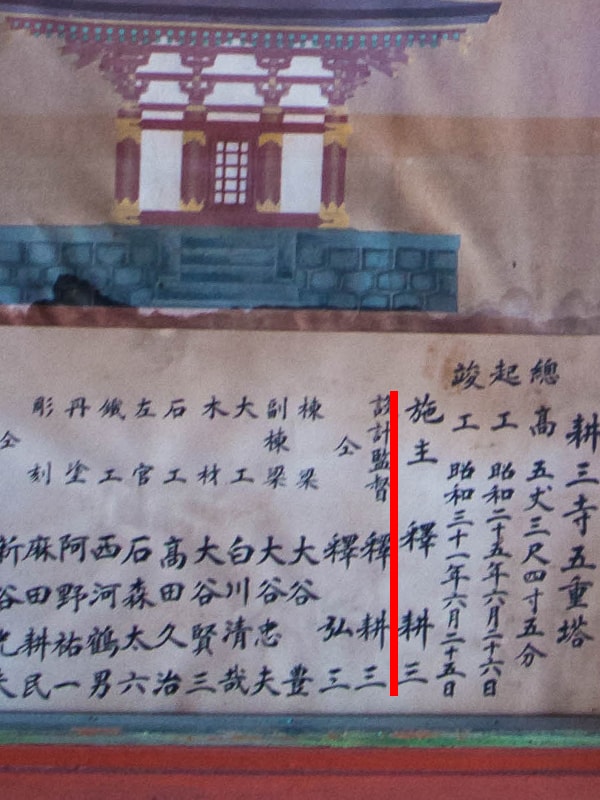 耕三寺五重塔
總高 五丈三尺四寸五分
起工 昭和二十五年六月二十六日
竣工 昭和三十一年六月二十五日
施主 釋耕三
設計監督 釋耕三
仝 釋弘三
棟梁 大谷豊
副棟梁 大谷忠夫
大工 白川清哉
木材 大谷賢三
石工 高田久治
左官 石森太六
鐵工 西河鶴男
丹塗 阿野祐一
彫刻 麻田耕民
仝 新谷